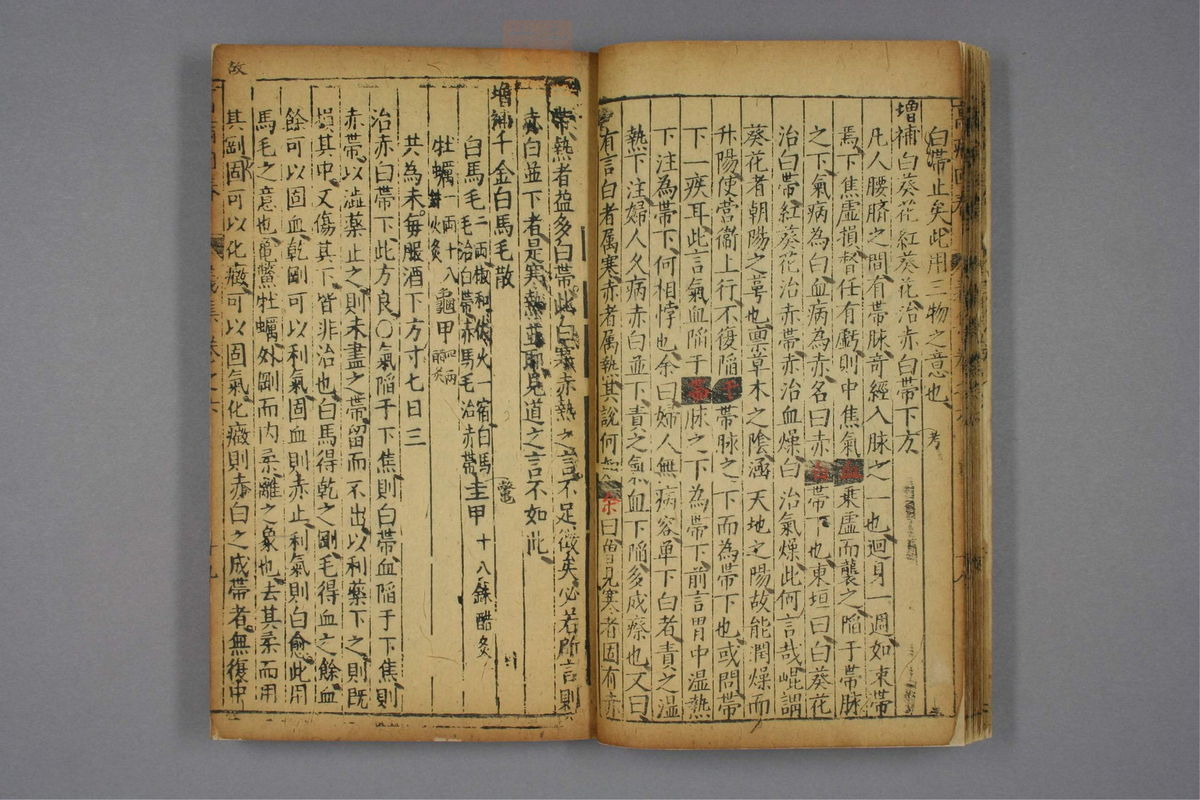 白帶止矣此用三物之意也
增補白葵花紅葵花治赤白帶下方
凡人腰臍之間有帶脉奇經八脉之一也迴身一週如束帶
焉下焦虛損督任有虧則中焦氣血乘虛而襲之陷于帶脉
之下氣病為白血病為赤名曰赤白帶下也東垣曰白葵花
治白帶紅葵花治赤帶赤治血燥白治氣燥此何言哉崐謂
葵花者朝陽之草也禀草木之陰涵天地之陽故能潤燥而
升陽使營衞上行不復陷于帶脉之下而為帶下也或問帶
下一疾耳此言氣血陷于帶脉之下為帶下前言胃中濕熱
下注為帶下何相悖也余曰婦人無病容單下白者責之濕
熱下注婦人久病赤白並下責之氣血下陷多成瘵也又曰
有言白者属寒赤者属熱其說何如余曰曾見寒者固有赤
帶熱者益多白帶此白寒赤熱之言不足徵矣必若所言則
赤白並下者是寒熱並耶見道之言不如此
增補千金白馬毛散
白馬毛二兩椒和伏火一宿白馬毛治白帶赤馬毛治赤帶 圭甲十八銖醋炙
牡蠣一兩十八銖火炙 龜甲四兩醋炙
共為末每服酒下方寸七日三
治赤白帶下此方良〇氣陷于下焦則白帶血陷于下焦則
赤帶以澁藥止之則未盡之帶留而不出以利藥下之則既
損其中又傷其下皆非治也白馬得乾之剛毛得血之餘血
餘可以固血乾剛可以利氣固血則赤止利氣則白愈此用
馬毛之意也龜鱉牡蠣外剛而內柔離之象也去其柔而用
其剛固可以化癥可以固氣化癥則赤白之成帶者無復中